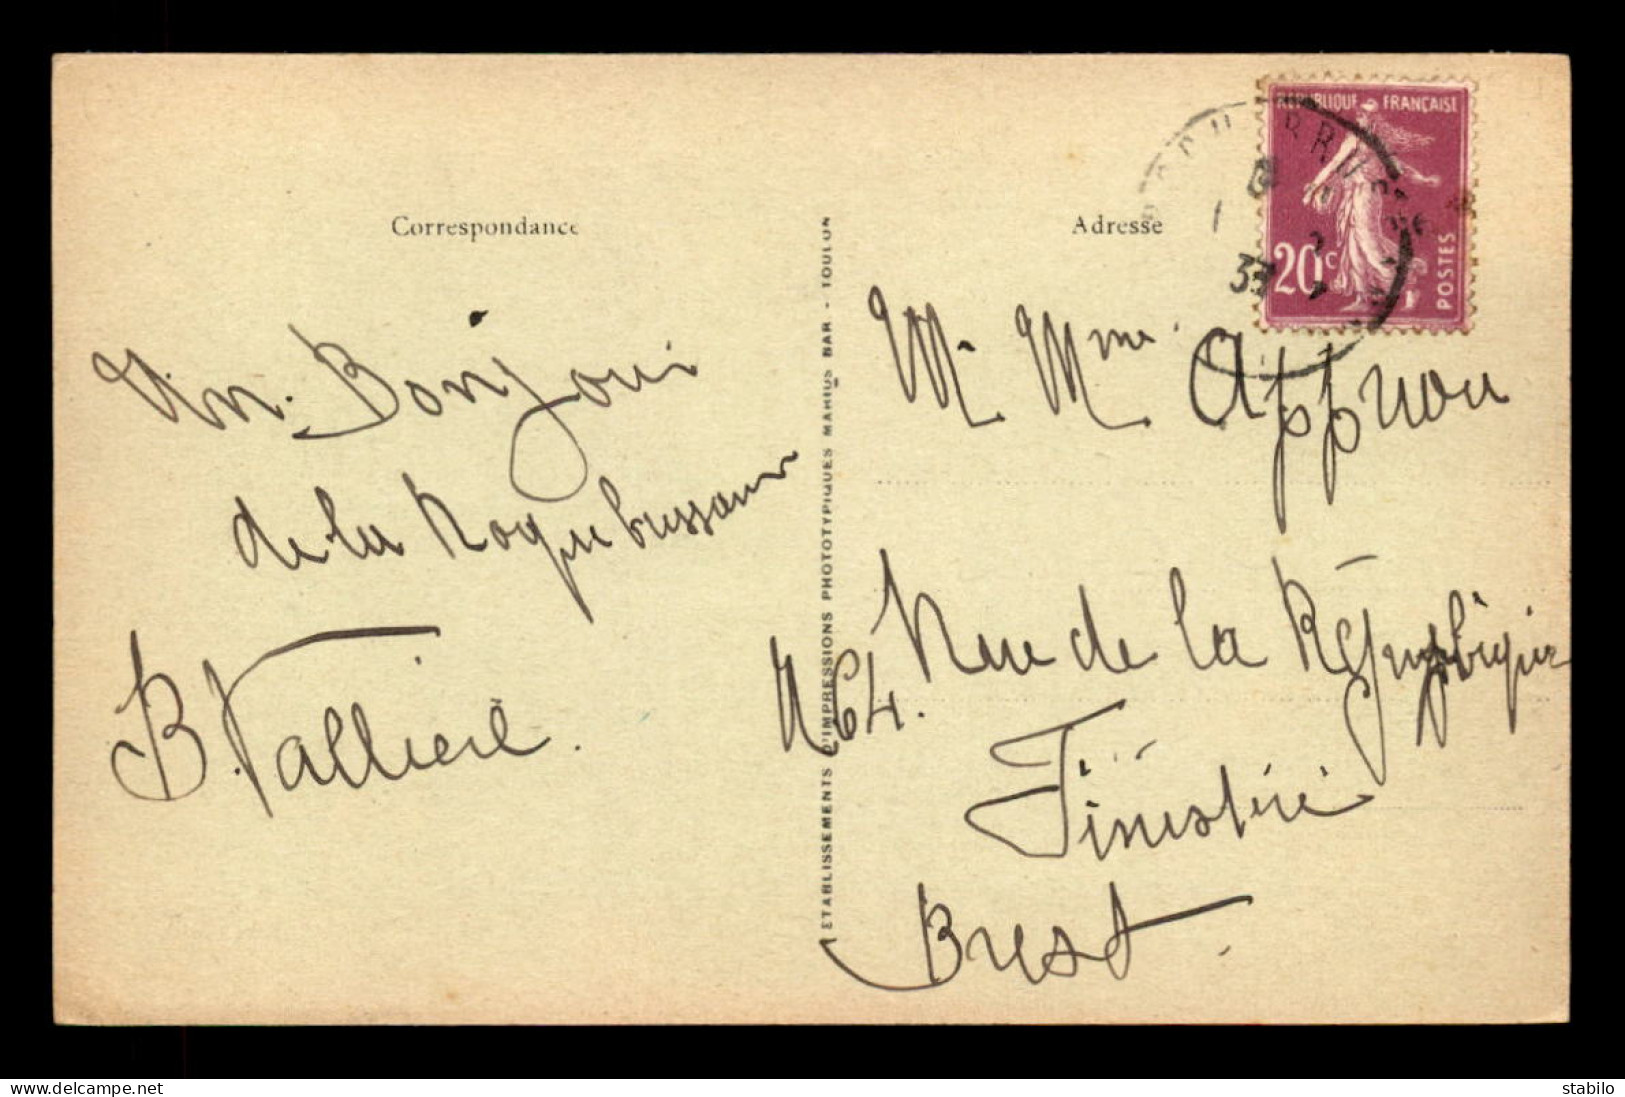 Correspondance
Un Bonjour
de la Roquebrussanne
B. Vallier
ETABLISSEMENTS D'IMPRESSIONS PHOTOTYPIQUES MARIUS BAR - TOULON
Adresse
REPUBLIQUE FRANÇAISE
20c
POSTES
33
M. Mme Appriou
Rue de la République
N 64.
Finistère
Brest
www.delcampe.net
stabilo